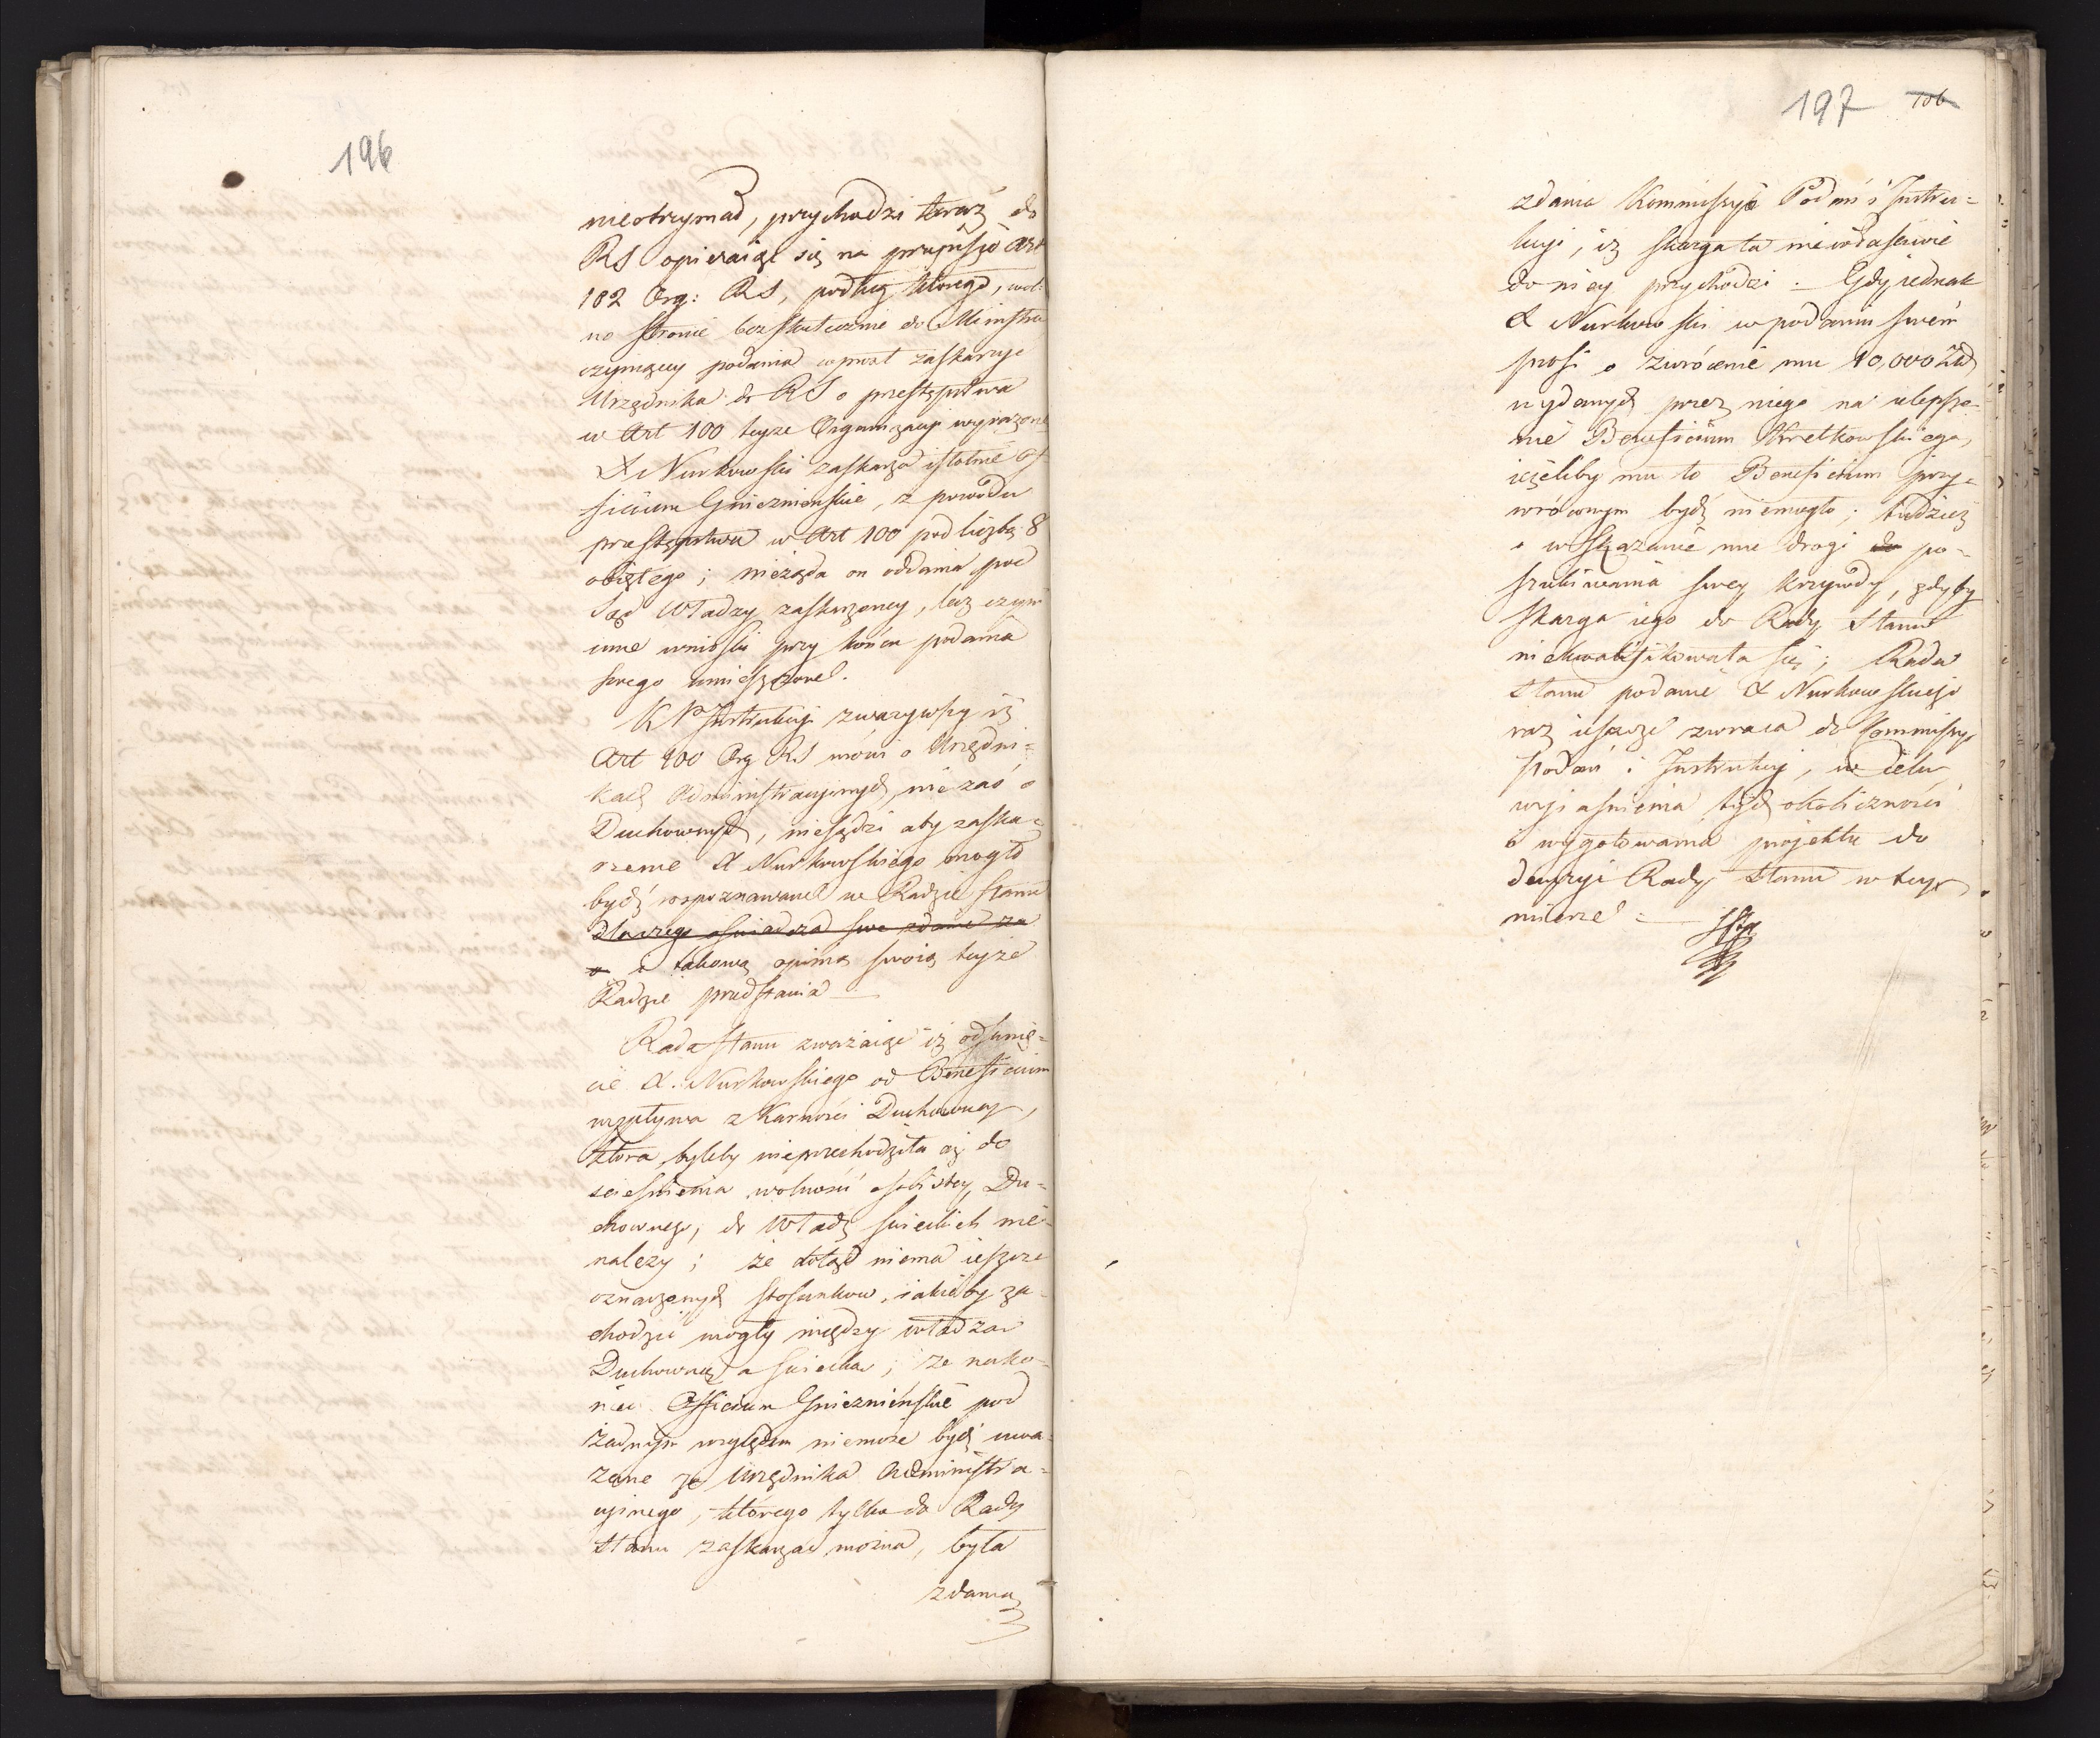 196
nieotrzymał, przychodzi teraz do
RS opieraiąc się na przepisie Art
102 Org: RS, podług którego, wol:
no stronie bezskutecznie do Ministra
czyniącey podania wprost zaskarzyć
Urzędnika do RS o przestępstwa
w Art 100 teyże Organizacyi wyrażone
X Nurkowski zaskarża istotnie Of-
ficium Gnieznienskie, z powodu
przestępstwa w Art 100 pod liczbą 8
obiętego; nieżąda on oddania pod
Sąd Władzy zaskarżoney, lecz czyni
inne wnioski przy końcu podania
swego umieszczone.
K P Instrukcyi zważywszy iż
Art 100 Org RS mówi o Urzędni=
kach Administracyinych, nie zaś o
Duchownych, niesądzi aby zaska=
rzenie X Nurkowskiego mogło
bydź rospoznawane w Radzie Stanu
dlaczego oświadcza swe zdanie za
o i takową opinią swoią teyże
Radzie przedstawia —
Rada Stanu zważaiąc iż odsunię=
cie X. Nurkowskiego od Beneficium
wypływa z Karności Duchowney,
która, byleby nieprzechodziła aż do
ścieśnienia wolności osobistey Du=
chownego, do Władz świeckich nie
należy; że dotąd niema ieszcze
oznaczonych stosunków, iakieby za-
chodzić mogły między władzą
Duchowną a świecką; że nako-
niec Officium Gnieznieńskie pod
żadnym względem niemoże bydź uwa-
żane za Urzędnika Administra=
cyinego, którego tylko do Rady
Stanu zaskarżać można, była
zdania
197 106
zdania Kommissyi Podań i Instru=
kcyi, iż skarga ta niewłaściwie
do niey przychodzi. Gdy iednak
X Nurkowski w podaniu swém
prosi o zwrócenie mu 10,000 Złł
wydanych przez niego na ulepsze-
nie Beneficium Kretkowskiego,
ieżeliby mu to Beneficium przy=
wróconym bydź niemogło; tudzież
o wskazanie mu drogi do po-
szukiwania swey krzywdy, gdyby
skarga iego do Rady Stanu
niekwalifikowała się; Rada
Stanu podanie X Nurkowskiego
raz ieszcze zwraca do Kommissyi
Podań i Instrukcyi, w celu
wyiaśnienia tych okoliczności
i wygotowania projektu do
decyzyi Rady Stanu w tey
mierze =